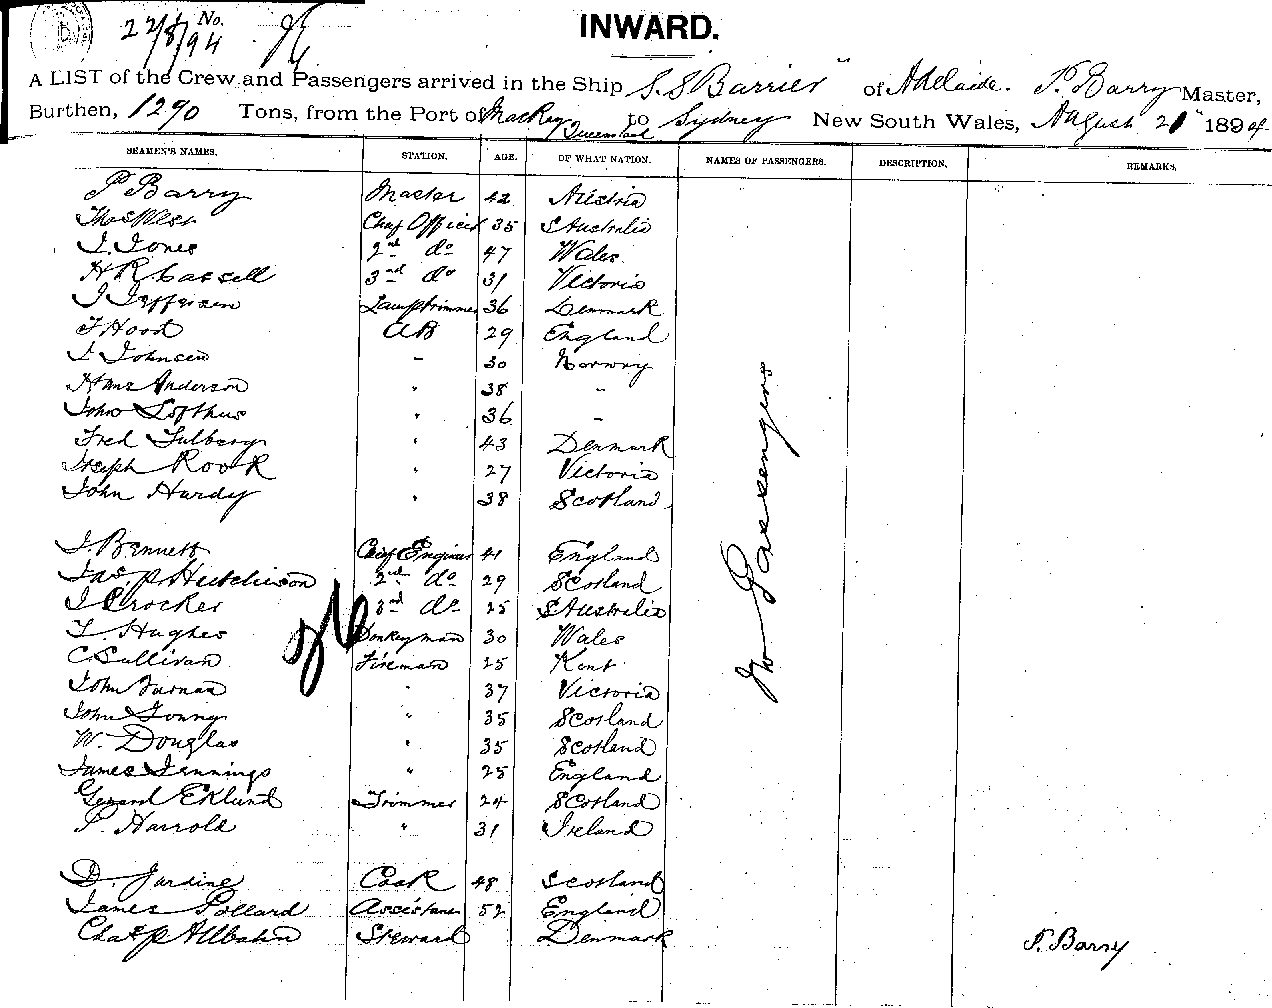 No.
22/8/94
INWARD.
A LIST of the Crew and Passengers arrived in the Ship S.S Barrier" of Adelaide. P. Barry Master,
Burthen, 1290 Tons, from the Port of Mackay Queensland to Sydney New South Wales, August 21" 1894.
SEAMEN'S NAMES. STATION. AGE. OF WHAT NATION. NAMES OF PASSENGERS. DESCRIPTION. REMARKS.
P Barry Master 42 Austria
Thos West Chief Officer 35 S Australia
J. Jones 2nd do 47 Wales.
H R Cassell 3rd do 31 Victoria
J Jefferson Lamptrimmer 36 Denmark
T Hood AB 29 England
J Johnsen " 30 Norway
Hans Anderson " 38 "
John Lofthus " 36 "
Fred Tulberg " 43 Denmark
Joseph Rook " 27 Victoria
John Hardy " 38 Scotland
J. Bennett Chief Engineer 41 England
Jas. P Hutchison 2nd do 29 Scotland
J Crocker 3rd do 25 S Australia
T Hughes Donkeyman 30 Wales
C. Sullivan Fireman 25 Kent
John " 37 Victoria
John " 35 Scotland
W. Douglas " 35 Scotland
James Jennings " 25 England
Gerard Eklund Trimmer 24 Scotland
P. Harrold " 31 Ireland
D. Jardine Cook 48 Scotland
James Pollard Assistant 52 England
Chas P Allbahn Steward Denmark
No Passengers
P. Barry